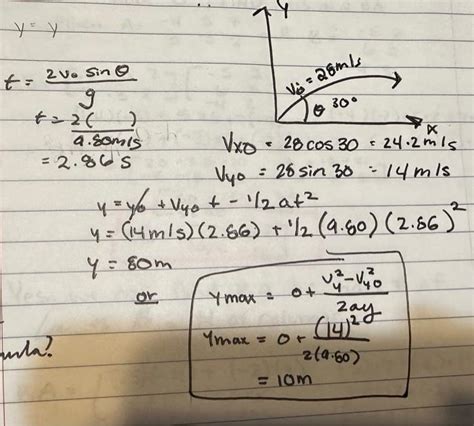 y
y = y
t = 2v₀ sinθ / g
v₀ = 28m/s
θ 30°
x
t = 2( ) / 9.80m/s
= 2.86 s
Vx0 = 28 cos 30 = 24.2 m/s
Vy0 = 28 sin 30 = 14 m/s
y = y0 + Vy0 t - 1/2 at²
y = (14 m/s)(2.86) + 1/2 (9.80)(2.86)²
y = 80m
or
ymax = 0 + Vy² - Vy0² / 2ay
ymax = 0 + (14)² / 2(9.80)
= 10m